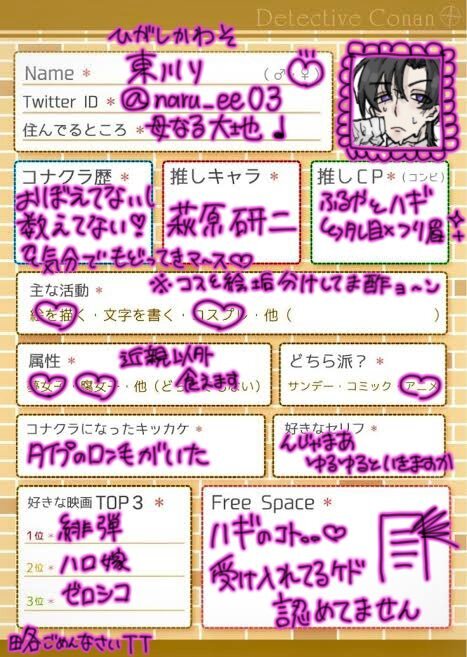 Detective Conan
ひがしかわそ
Name * 東川り (♂・♀)
Twitter ID * @naru_ee03
住んでるところ * 母なる大地♩
コナクラ歴 *
おぼえてないし
教えてない♡
気分でもどってきマース♡
推しキャラ *
萩原研二
推しCP * (コンビ)
ふるやとハギ
※コスと絵垢分けしてま酢ョ〜ン
主な活動 *
絵を描く・文字を書く・コスプレ・他 ( )
属性 * 近親以外
食えます
腐女子・他
どちら派？ *
サンデー・コミック・アニメ
コナクラになったキッカケ *
タイプのロンモがいた
好きなセリフ *
んじゃまあ
ゆるゆるといきますか
好きな映画TOP3 *
1位 * 緋弾
2位 * ハロ嫁
3位 * ゼロシコ
Free Space *
ハギのコト。。♡
受け入れてるケド
認めてません
略ごめんなさいTT